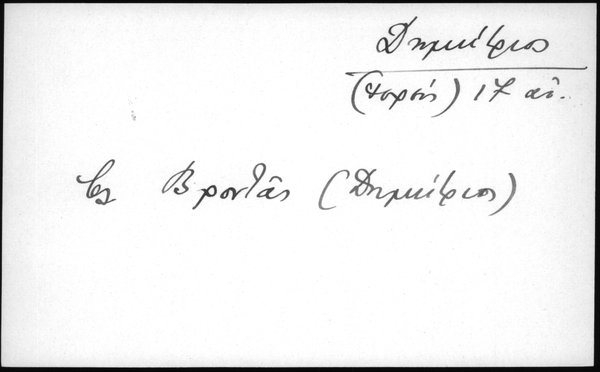 Δημήτριος
() 17 αἰ.
βλ Βροντᾶς (Δημήτριος)